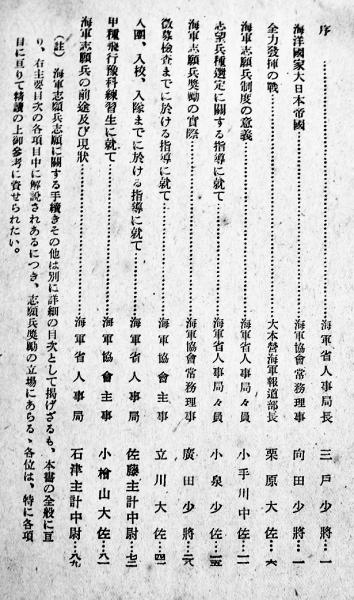 序……海軍省人事局長 三戸少將…一
海洋國家大日本帝國……海軍協會常務理事 向田少將…一
全力發揮の戰……大本營海軍報道部長 栗原大佐…六
海軍志願兵制度の意義……海軍省人事局々員 小手川中佐…二
志望兵種選定に關する指導に就て……海軍省人事局々員 小泉少佐…一五
海軍志願兵奬勵の實際……海軍協會常務理事 廣田少將…二八
徵募檢査までに於ける指導に就て……海軍協會主事 立川大佐…四一
入團、入校、入隊までに於ける指導に就て……海軍省人事局 佐藤主計中尉…七三
甲種飛行豫科練習生に就て……海軍協會主事 小檜山大佐…八一
海軍志願兵の前途及び現狀……海軍省人事局 石津主計中尉…八九
(註) 海軍志願兵志願に關する手續きその他は別に詳細の目次として揭げざるも、本書の全般に亘
り、右主要目次の各項目中に解說されあるにつき、志願兵奬勵の立場にあらるゝ各位は、特に各項
目に亘りて精讀の上御參考に資せられたい。